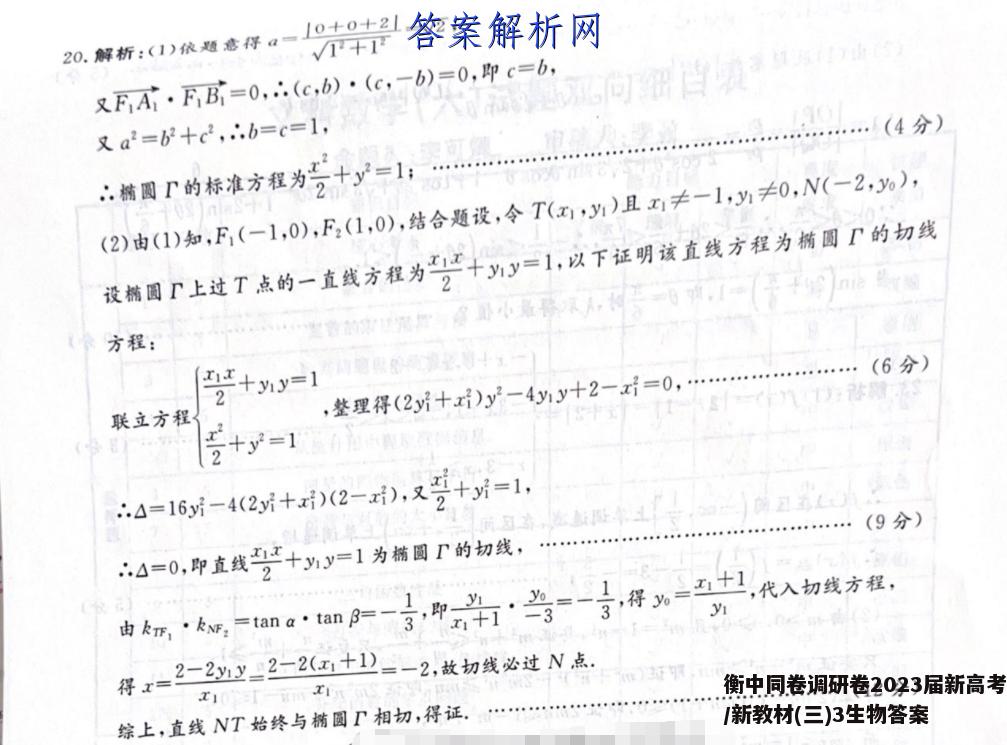 答案解析网
20. 解析:(1)依题意得 a=|0+0+2|/√(1²+1²)
又 F₁A₁·F₁B₁=0,∴(c,b)·(c,-b)=0,即 c=b,
又 a²=b²+c²,∴b=c=1,
∴椭圆 Γ 的标准方程为 x²/2+y²=1; (4 分)
(2)由(1)知,F₁(-1,0),F₂(1,0),结合题设,令 T(x₁,y₁)且 x₁≠-1,y₁≠0,N(-2,y₀),
设椭圆 Γ 上过 T 点的一直线方程为 x₁x/2+y₁y=1,以下证明该直线方程为椭圆 Γ 的切线
方程;
联立方程{x₁x/2+y₁y=1
x²/2+y²=1
,整理得(2y₁²+x₁²)y²-4y₁y+2-x₁²=0, (6 分)
∴Δ=16y₁²-4(2y₁²+x₁²)(2-x₁²),又 x₁²/2+y₁²=1,
∴Δ=0,即直线 x₁x/2+y₁y=1 为椭圆 Γ 的切线, (9 分)
由 k_TF₁·k_NF₂=tan α·tan β=-1/3,即 y₁/(x₁+1)·y₀/-3=-1/3,得 y₀=(x₁+1)/y₁,代入切线方程,
得 x=(2-2y₁y)/x₁=(2-2(x₁+1))/x₁=-2,故切线必过 N 点.
综上,直线 NT 始终与椭圆 Γ 相切,得证.
衡中同卷调研卷2023届新高考
/新教材(三)3生物答案